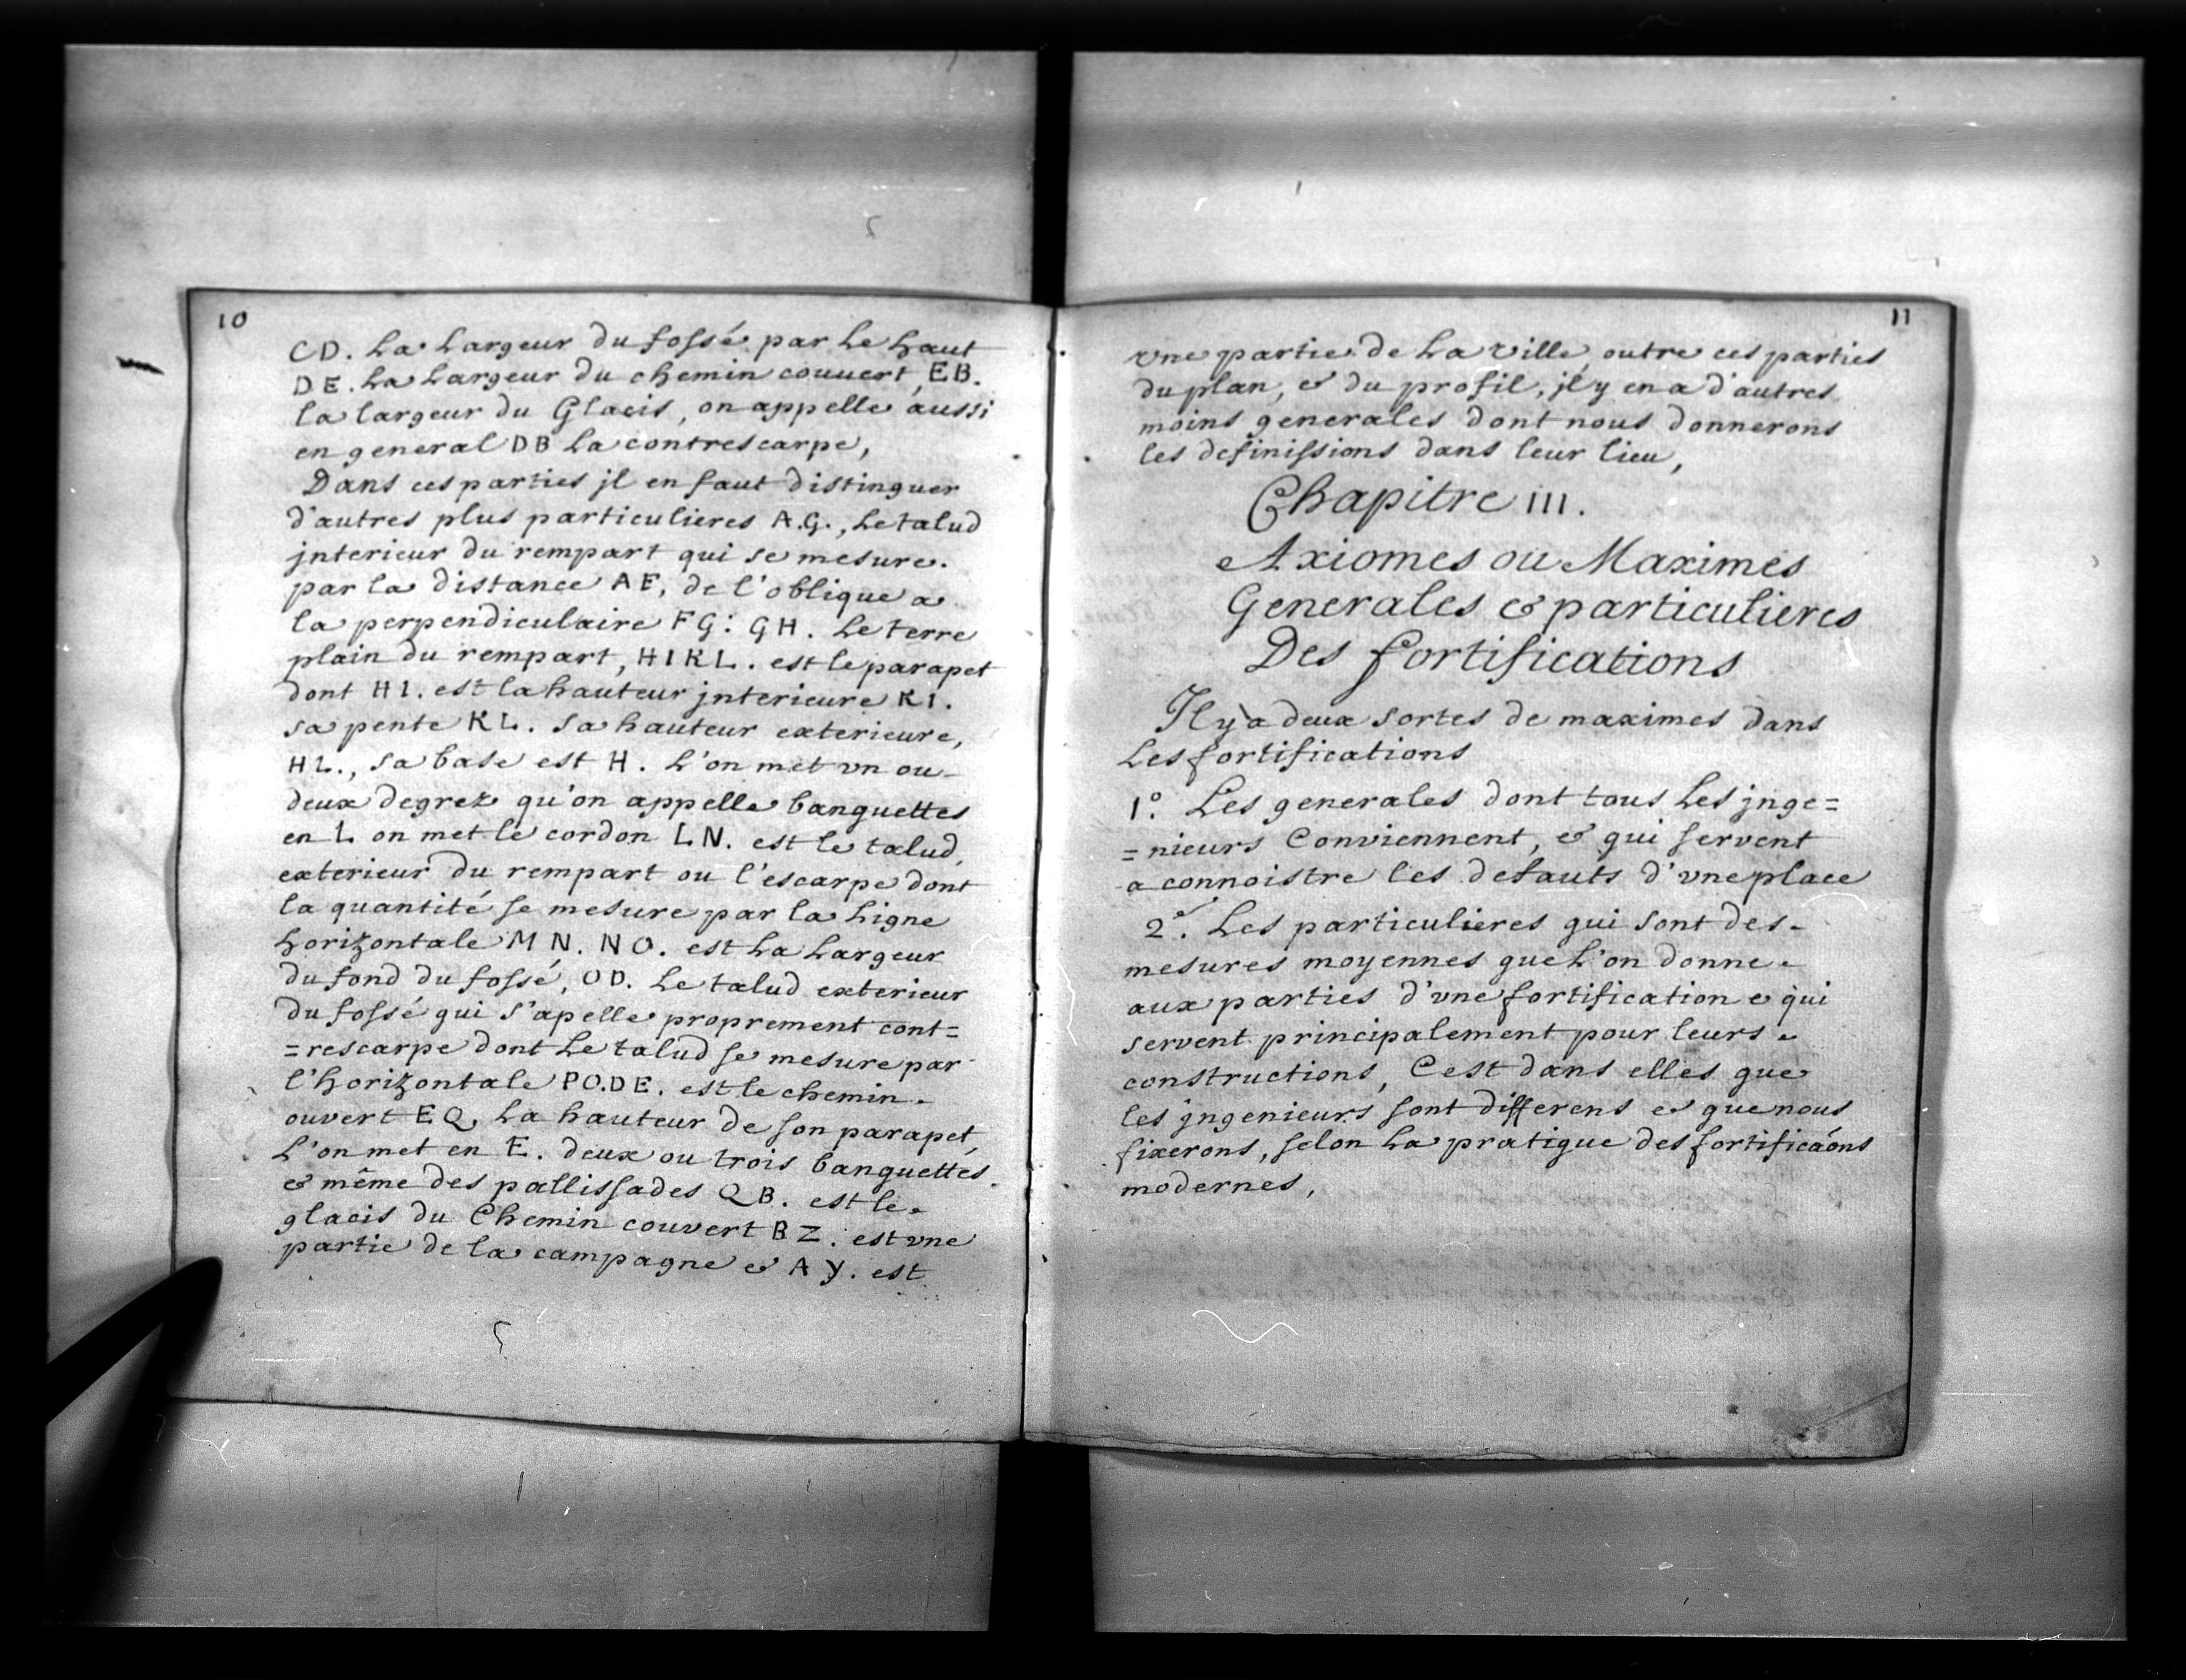 10
CD. La Largeur du fossé par Le haut
DE. La Largeur du chemin couuert, EB.
la largeur du Glacis, on appelle aussi
en general DB La contrescarpe,
Dans ces parties jl en faut distinguer
d'autres plus particulieres A.G., Le talud
jnterieur du rempart qui se mesure.
par la distance AF, de l'oblique a
la perpendiculaire FG: GH. Le terre
plain du rempart, HIKL. est le parapet
dont HI. est la hauteur jnterieure KI.
sa pente KL. sa hauteur exterieure,
HL., sa base est H. L'on met vn ou
deux degrez qu'on appelle banquettes
en L on met le cordon LN. est le talud,
exterieur du rempart ou l'escarpe dont
la quantité se mesure par la Ligne
horizontale MN. NO. est La Largeur
du fond du fossé, OD. Le talud exterieur
du fossé qui s'apelle proprement cont=
=rescarpe dont Le talud se mesure par
l'horizontale PO.DE. est le chemin.
ouvert EQ, La hauteur de son parapet,
L'on met en E. deux ou trois banquettes.
& même des pallissades QB. est le.
glacis du Chemin couvert BZ. est vne
partie de la campagne & AY. est
11
vne partie de La ville, outre ces parties
du plan, & du profil, jl y en a d'autres
moins generales dont nous donnerons
les definissions dans leur lieu,
Chapitre III.
Axiomes ou Maximes
Generales & particulieres
Des fortifications
Il y a deux sortes de maximes dans
Les fortifications
1.° Les generales dont tous Les jnge=
=nieurs Conviennent, & qui servent
a connoistre les defauts d'vne place
2.° Les particulieres qui sont des
mesures moyennes que L'on donne.
aux parties d'vne fortification & qui
servent principalement pour leurs.
constructions, C'est dans elles que
les jngenieurs sont differens & que nous
fixerons, selon La pratique des fortificaõns
modernes,